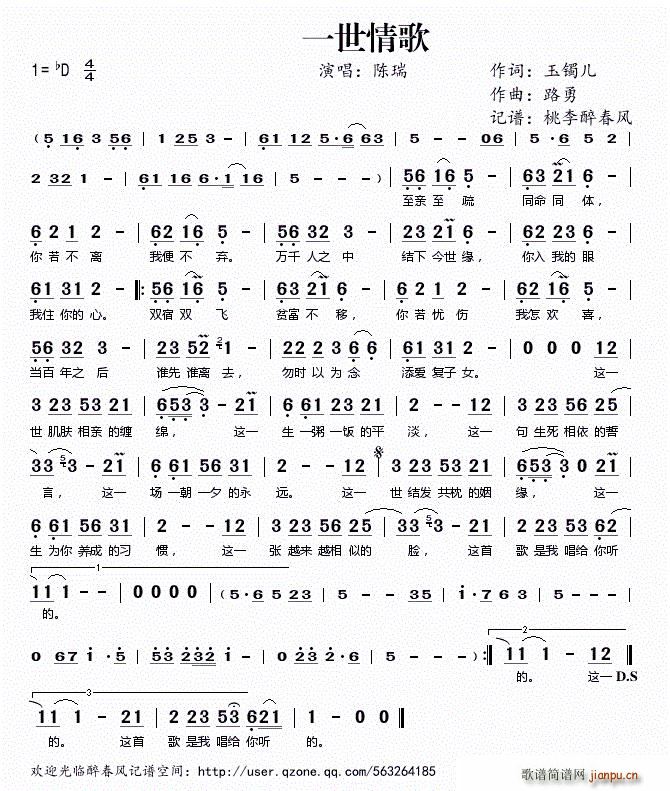 一世情歌
1=♭D 4/4 演唱：陈瑞 作词：玉镯儿
作曲：路勇
记谱：桃李醉春风
( 5 16 3 56 | 1 25 3 - | 61 12 5·6 63 | 5 - - 06 | 5 · 6 5 - |
2 32 1 - | 61 16 6·1 16 | 5 - - - ) | 56 16 5 - | 63 21 6 - |
至亲 至 疏 同命 同 体，
6 2 1 2 - | 62 16 5 - | 56 32 3 - | 56 12 2 - | 62 23 5 6 |
你 若 不 离 我便 不 弃。 万千 人之 中 结下 今世 缘， 你入 我的 眼
61 31 2 - |: 56 16 5 - | 63 21 6 - | 6 2 1 2 - | 62 16 5 - |
我住 你的 心。 双宿 双 飞 贫富 不 移， 你 若 忧 伤 我怎 欢 喜，
56 32 3 - | 23 52 1 - | 22 2 3 6 6 | 61 23 2 - | 0 0 0 12 |
当百 年之 后 谁先 谁离 去， 勿时 以 为 念 添爱 复子 女。 这一
3 23 53 21 | 6533 - 21 | 6 61 23 53 | 2 - - 12 | 3 53 56 25 |
世 肌肤 相亲 的缠 绵， 这一 生 一粥 一饭 的平 淡， 这一 句 生死 相依 的誓
33 3 - 21 | 6 61 56 31 | 2 - - 12 | 3 23 53 21 | 6533 0 21 |
言， 这一 场 一朝 一夕 的永 远。 这一 世 结发 共枕 的姻 缘， 这一
6 61 56 31 | 2 - - 12 | 3 23 56 25 | 33 3 - 21 | 2 23 53 62 |
生 为你 养成 的习 惯， 这一 张 越来 越相 似的 脸， 这首 歌 是我 唱给 你听
1
11 1 - - | 0 0 0 0 | ( 5·6 5 23 | 5 - - 35 | i · 7 63 5 |
的。
0 67 i · 5 | 53 2332 i - | 0 23 2·6 | 5 - - - ) :| 2 11 1 - 12 ‖
的。 这一 D.S
3
11 1 - 21 | 2 23 53 6221 | 1 - - ‖
的。 这首 歌 是我 唱给 你听 的。
欢迎光临醉春风记谱空间：http://user.qzone.qq.com/563264185
歌谱简谱网 jianpu.cn